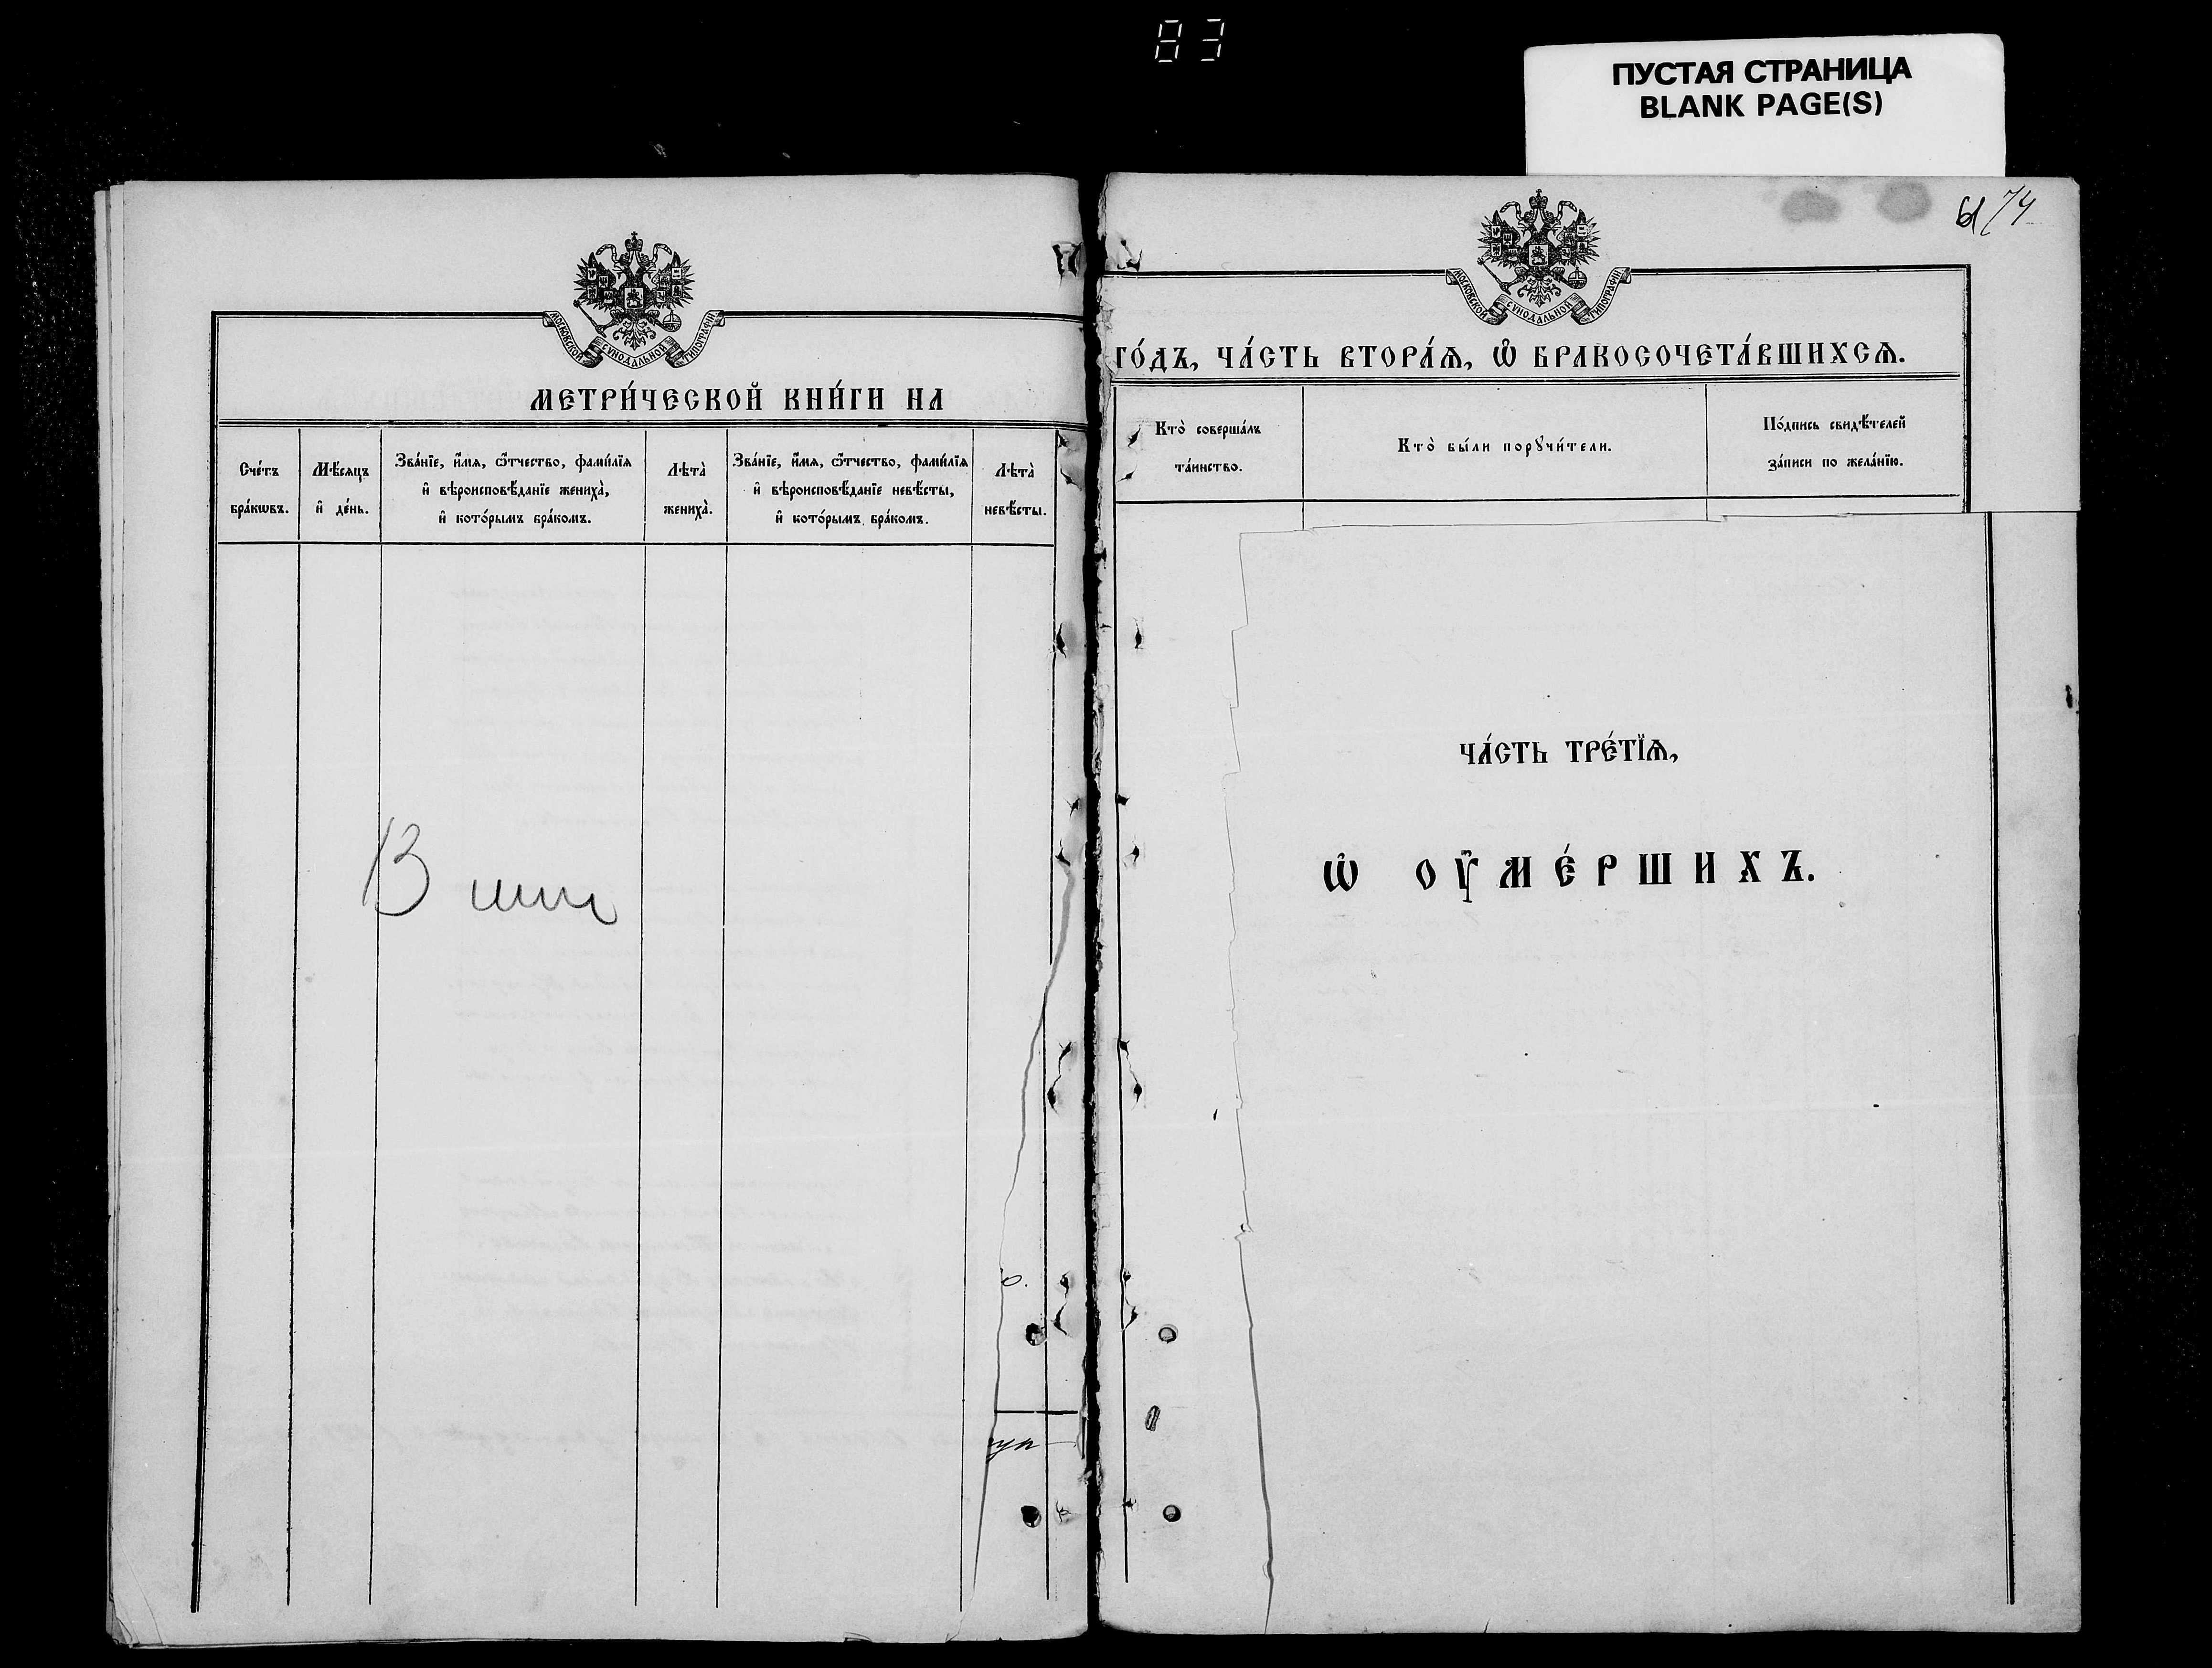 83
ПУСТАЯ СТРАНИЦА
BLANK PAGE(S)
74
МОСКОВСКОЙ СѴНОДАЛЬНОЙ ТИПОГРАФІИ
МЕТРИ́ЧЕСКОЙ КНИ́ГИ НА
Сче́тъ бра́кѡвъ.
Мѣ́сяцъ и҆ де́нь.
Зва́нїе, и҆́мя, ѻ҆́тчество, фами́лїя
и҆ вѣроисповѣ́данїе жениха̀,
и҆ кото́рымъ бра́комъ.
Лѣта̀ жениха̀.
Зва́нїе, и҆́мя, ѻ҆́тчество, фами́лїя
и҆ вѣроисповѣ́данїе невѣ́сты,
и҆ кото́рымъ бра́комъ.
Лѣта̀ невѣ́сты.
МОСКОВСКОЙ СѴНОДАЛЬНОЙ ТИПОГРАФІИ
ГО́ДЪ, ЧА́СТЬ ВТОРА́Ѧ, Ѡ҆ БРАКОСОЧЕТА́ВШИХСѦ.
Кто̀ соверша́лъ
та́инство.
Кто̀ бы́ли порꙋчи́тели.
По́дпись свидѣ́телей
за́писи по жела́нїю.
ЧА́СТЬ ТРЕ́ТЇѦ,
Ѡ҆ ОУ҆МЕ́РШИХЪ.